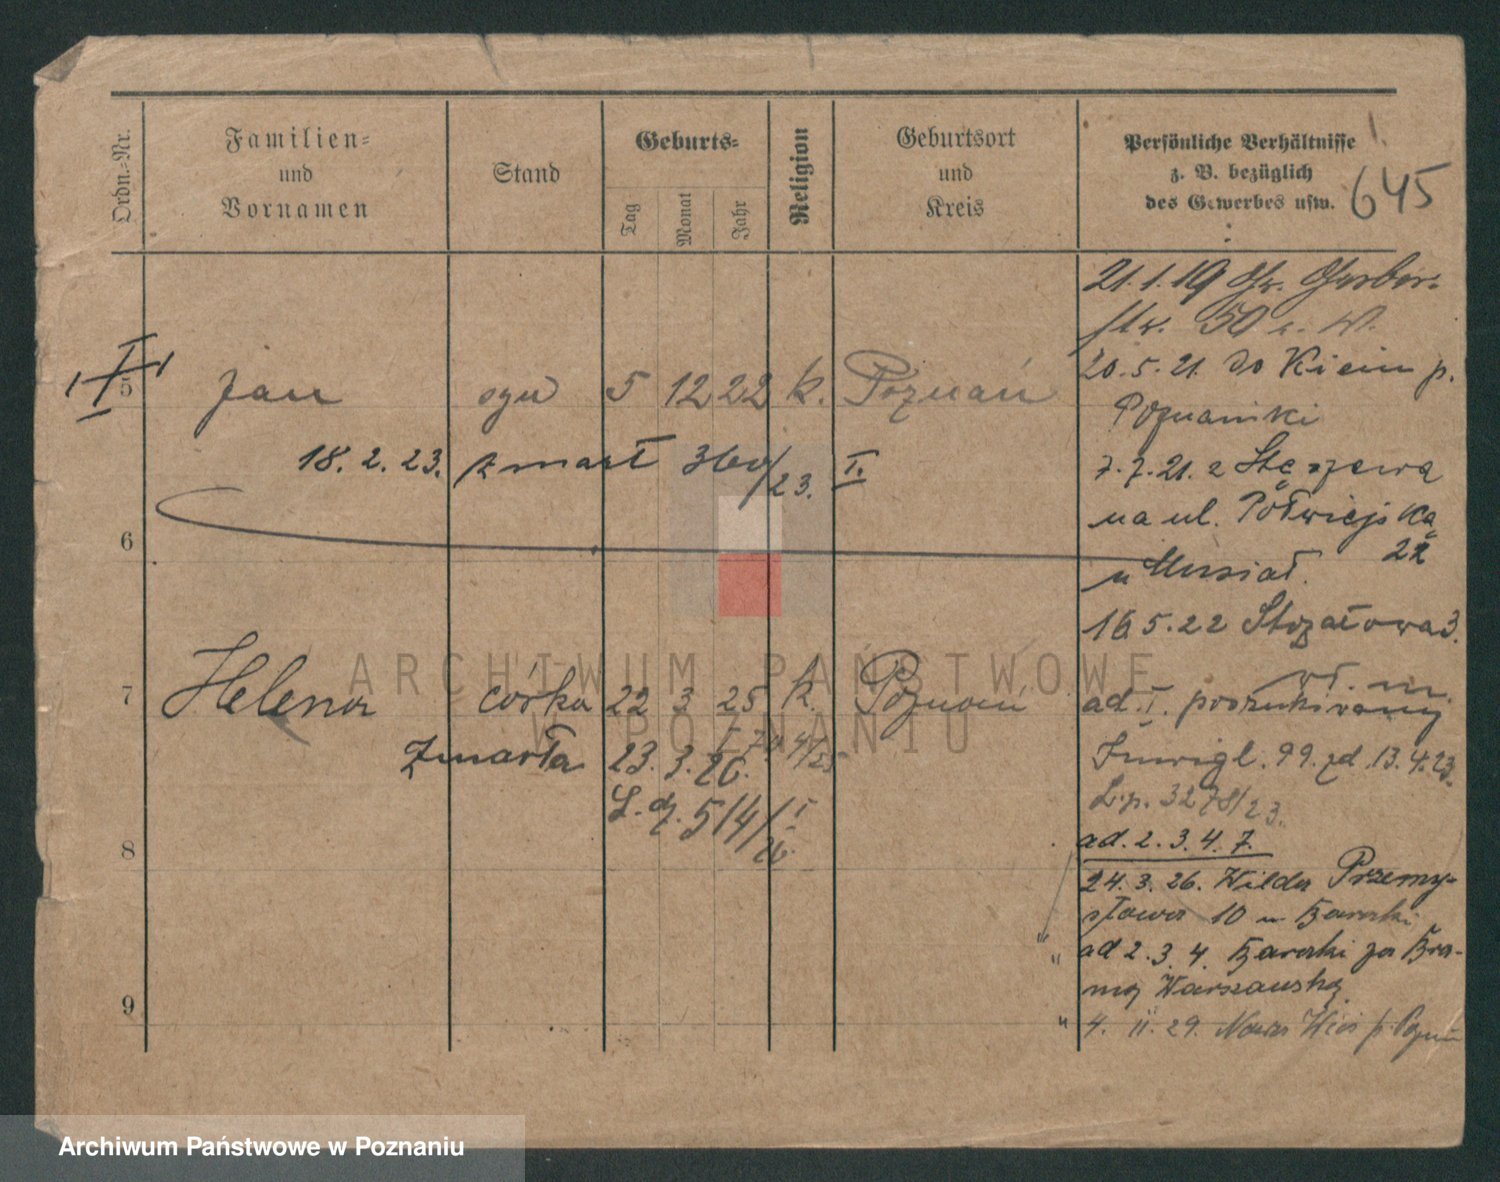 Ordn.-Nr.
Familien-
und
Vornamen
Stand
Geburts-
Tag
Monat
Jahr
Religion
Geburtsort
und
Kreis
Persönliche Verhältnisse
z. B. bezüglich
des Gewerbes usw.
645
21.1.19 Gr. Gerber-
str. 50
20.5.21. do Kicin p.
Poznański
5 Jan syn 5 12 22 k. Poznań
18.2.23. zmarł 360/23. I.
7.7.21. z Stęszewa
na ul. Półwiejską
22
u Musiał.
6
16.5.22 Strzałowa 3.
wł. m.
7 Helena córka 22 3 25 k. Poznań
ad. I. poszukiwany
Zmarła 23. 3. 26.
Inwigl. 99. zd. 13.4.23.
L. dz. 514/I 26.
L.p. 3278/23.
ad. 2. 3. 4. 7.
8
24.3.26. Wilda Przemy-
słowa 10 Baraki
ad 2. 3. 4. Baraki za Bra-
mą Warszawską
9
4. 11. 29. Nowa Wieś p. Poznań
ARCHIWUM PAŃSTWOWE
W POZNANIU
Archiwum Państwowe w Poznaniu